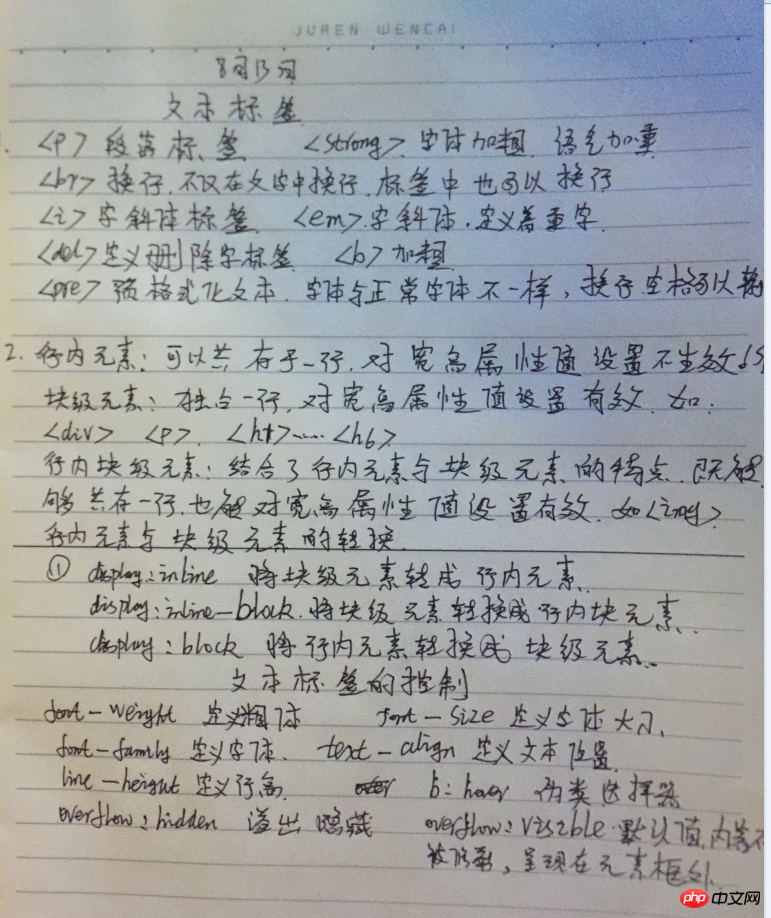 JUREN WENCAI
8月15日
文本标签
<p> 段落标签 <strong>. 字体加粗. 语气加重
<br> 换行. 不仅在文字中换行. 标签中也可以换行
<i> 字斜体标签 <em>. 字斜体. 定义着重字
<del> 定义删除字标签 <b> 加粗
<pre> 预格式化文本. 字体与正常字体不一样, 换行空格可以
2. 行内元素: 可以共存于一行, 对宽高属性值设置不生效
块级元素: 独占一行, 对宽高属性值设置有效. 如:
<div> <p>. <h1>……<h6>
行内块级元素: 结合了行内元素与块级元素的特点. 既能
够共存一行, 也能对宽高属性值设置有效. 如<img>
行内元素与块级元素的转换.
① display:inline 将块级元素转成行内元素.
display:inline-block. 将块级元素转换成行内块元素.
display:block 将行内元素转换成块级元素.
文本标签的控制
font-weight 定义粗体 font-size 定义字体大小.
font-family 定义字体. text-align 定义文本位置
line-height 定义行高. b:hover 伪类选择器
overflow:hidden 溢出隐藏 overflow:visible.默认值.内容不
被修剪, 呈现在元素框外.
php 中文网